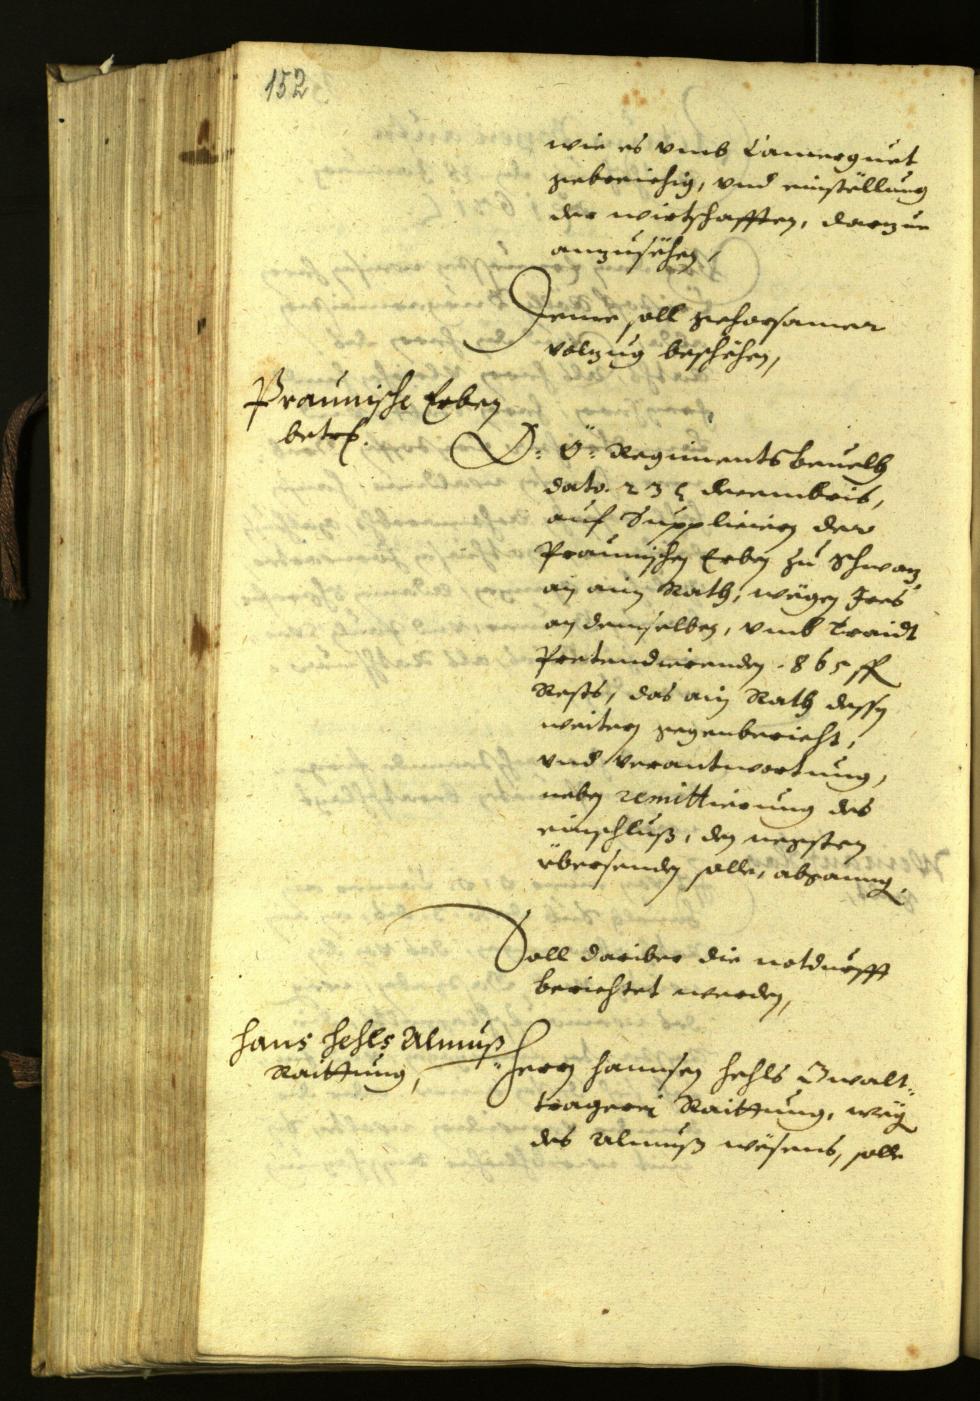 152
wie es vmb Camerguet
gebreichig, vnd einstellung
der wirtschafften, darzue
anzusëhen,
Deme soll gehorsamer
volzug beschëhen,
Praunische Erben
betrf.
O: Ö: Regiments beuelh
dato. 23 decembris,
auf Supplicirn der
Praunischen Erben zu Schwaz
an ain Rath, wegen Ires
an demselben, vmb Traidt
Pretendierenden 865 fl
Rests, das ain Rath dessen
weitern gegenbericht,
vnd verantwortung,
neben remittierung des
einschluß, den negsten
übersenden solle, abgangen,
Soll dariber die notdurfft
berichtet werden,
Hans Hehls Almuß
Raittung,
Herrn Hannsen Hehls Gwalt-
tragerei Raittung, wegen
des Almuß wësens, solle